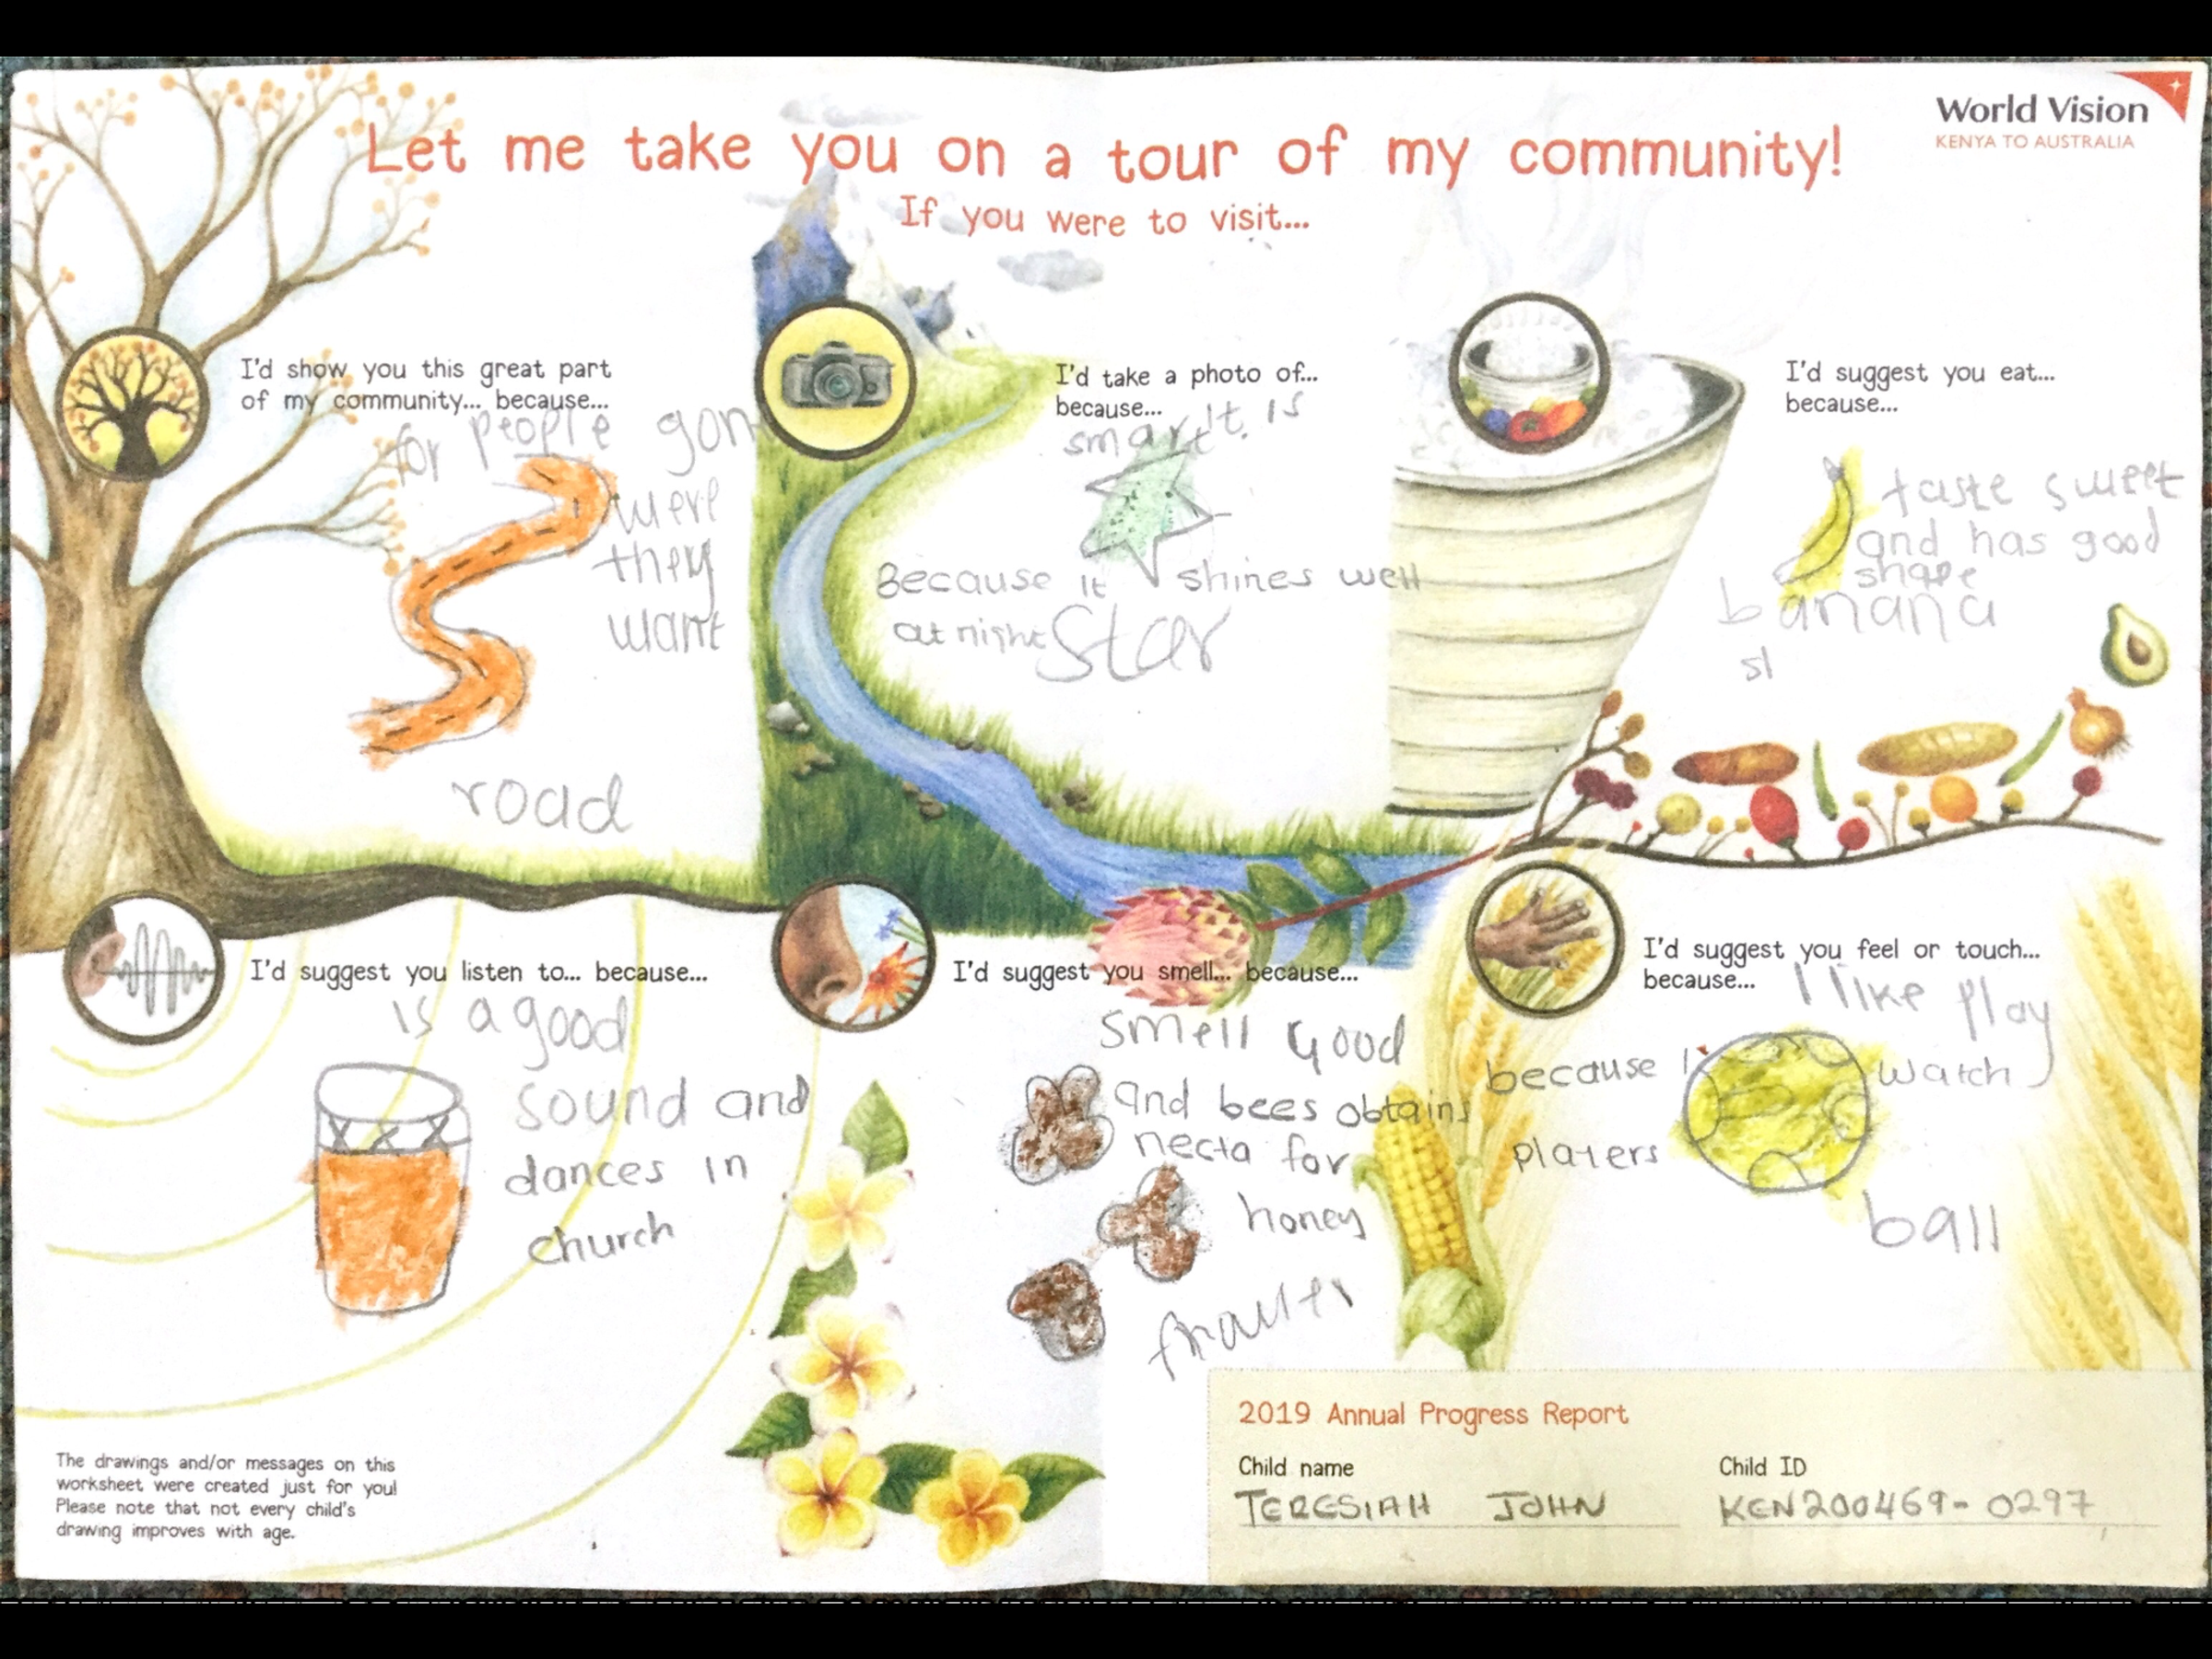 World Vision
KENYA TO AUSTRALIA
Let me take you on a tour of my community!
If you were to visit...
I'd show you this great part
of my community... because...
for people gon
were
they
want
road
I'd take a photo of...
because...
It is
smart.
Because it shines well
at night Star
I'd suggest you eat...
because...
taste sweet
and has good
shape
banana
sl
I'd suggest you listen to... because...
is a good
sound and
dances in
church
I'd suggest you smell... because...
smell good
and bees obtains
necta for
honey
I'd suggest you feel or touch...
because...
I like play
because I watch
players
ball
The drawings and/or messages on this
worksheet were created just for you!
Please note that not every child's
drawing improves with age.
2019 Annual Progress Report
Child name
TERESIAH JOHN
Child ID
KEN200469-0297